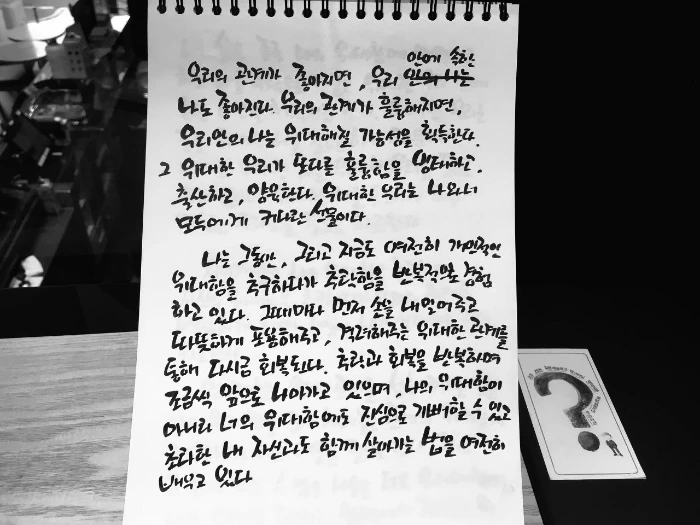 우리의 관계가 좋아지면, 우리 안에 속한
나도 좋아진다. 우리의 관계가 훌륭해지면,
우리안의 나는 위대해질 가능성을 획득한다.
그 위대한 우리가 또다른 훌륭함을 잉태하고,
출산하고, 양육한다. 위대한 우리는 나와 너
모두에게 커다란 선물이다.
나는 그동안, 그리고 지금도 여전히 개인적인
위대함을 추구하다가 추락함을 반복적으로 경험
하고 있다. 그때마다 먼저 손을 내밀어주고
따뜻하게 포옹해주고, 격려해주는 위대한 관계를
통해 다시금 회복된다. 추락과 회복을 반복하며
조금씩 앞으로 나아가고 있으며, 나의 위대함이
아니라 너의 위대함에도 진심으로 기뻐할 수 있고
초라한 내 자신과도 함께 살아가는 법을 여전히
배우고 있다
?